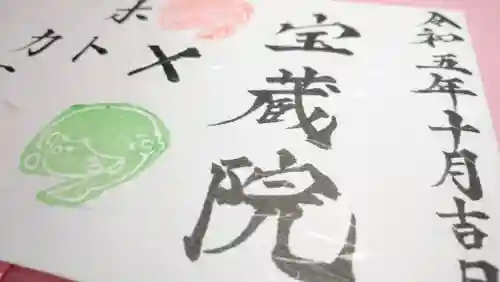 令和五年十月吉日
宝蔵院
メ
ホト
カ